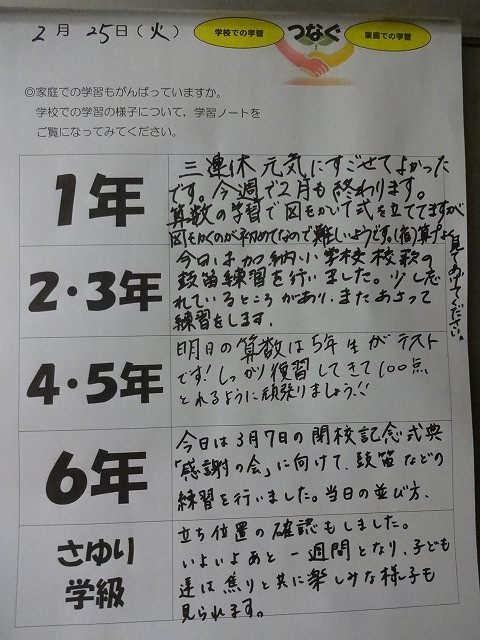 2月 25日(火)
学校での学習
つなぐ
家庭での学習
◎家庭での学習もがんばっていますか。
学校での学習の様子について、学習ノートを
ご覧になってみてください。
1年
三連休元気にすごせてよかった
です。今週で2月も終わります。
算数の学習で図をかいて式を立ててますが
図をかくのが初めてなので難しいようです。(宿)算プよ
見てあげてください。
2・3年
今日は加納小学校校歌の
鼓笛練習を行いました。少し忘
れているところがあり、またあさって
練習をします.
4・5年
明日の算数は5年生がテスト
です!しっかり復習してきて100点
とれるように頑張りましょう!!
6年
今日は3月7日の閉校記念式典
「感謝の会」に向けて、鼓笛などの
練習を行いました。当日の並び方、
さゆり
学級
立ち位置の確認もしました。
いよいよあと一週間となり、子ども
達は焦りと共に楽しみな様子も
見られます。